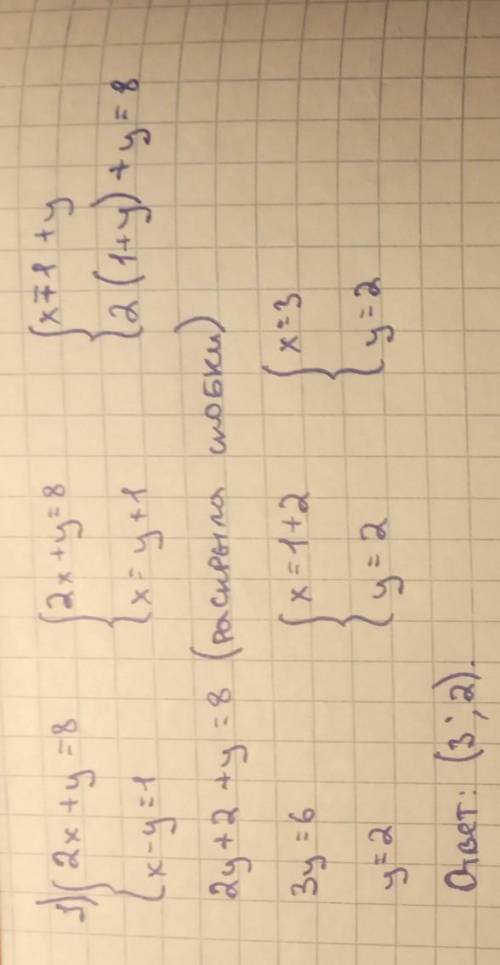 1) { 2x + y = 8 { 2x + y = 8 { x = 1 + y
{ x - y = 1 { x = y + 1 { 2(1 + y) + y = 8
2y + 2 + y = 8 (раскрыла скобки)
3y = 6 { x = 1 + 2 { x = 3
y = 2 { y = 2 { y = 2
Ответ: (3; 2).